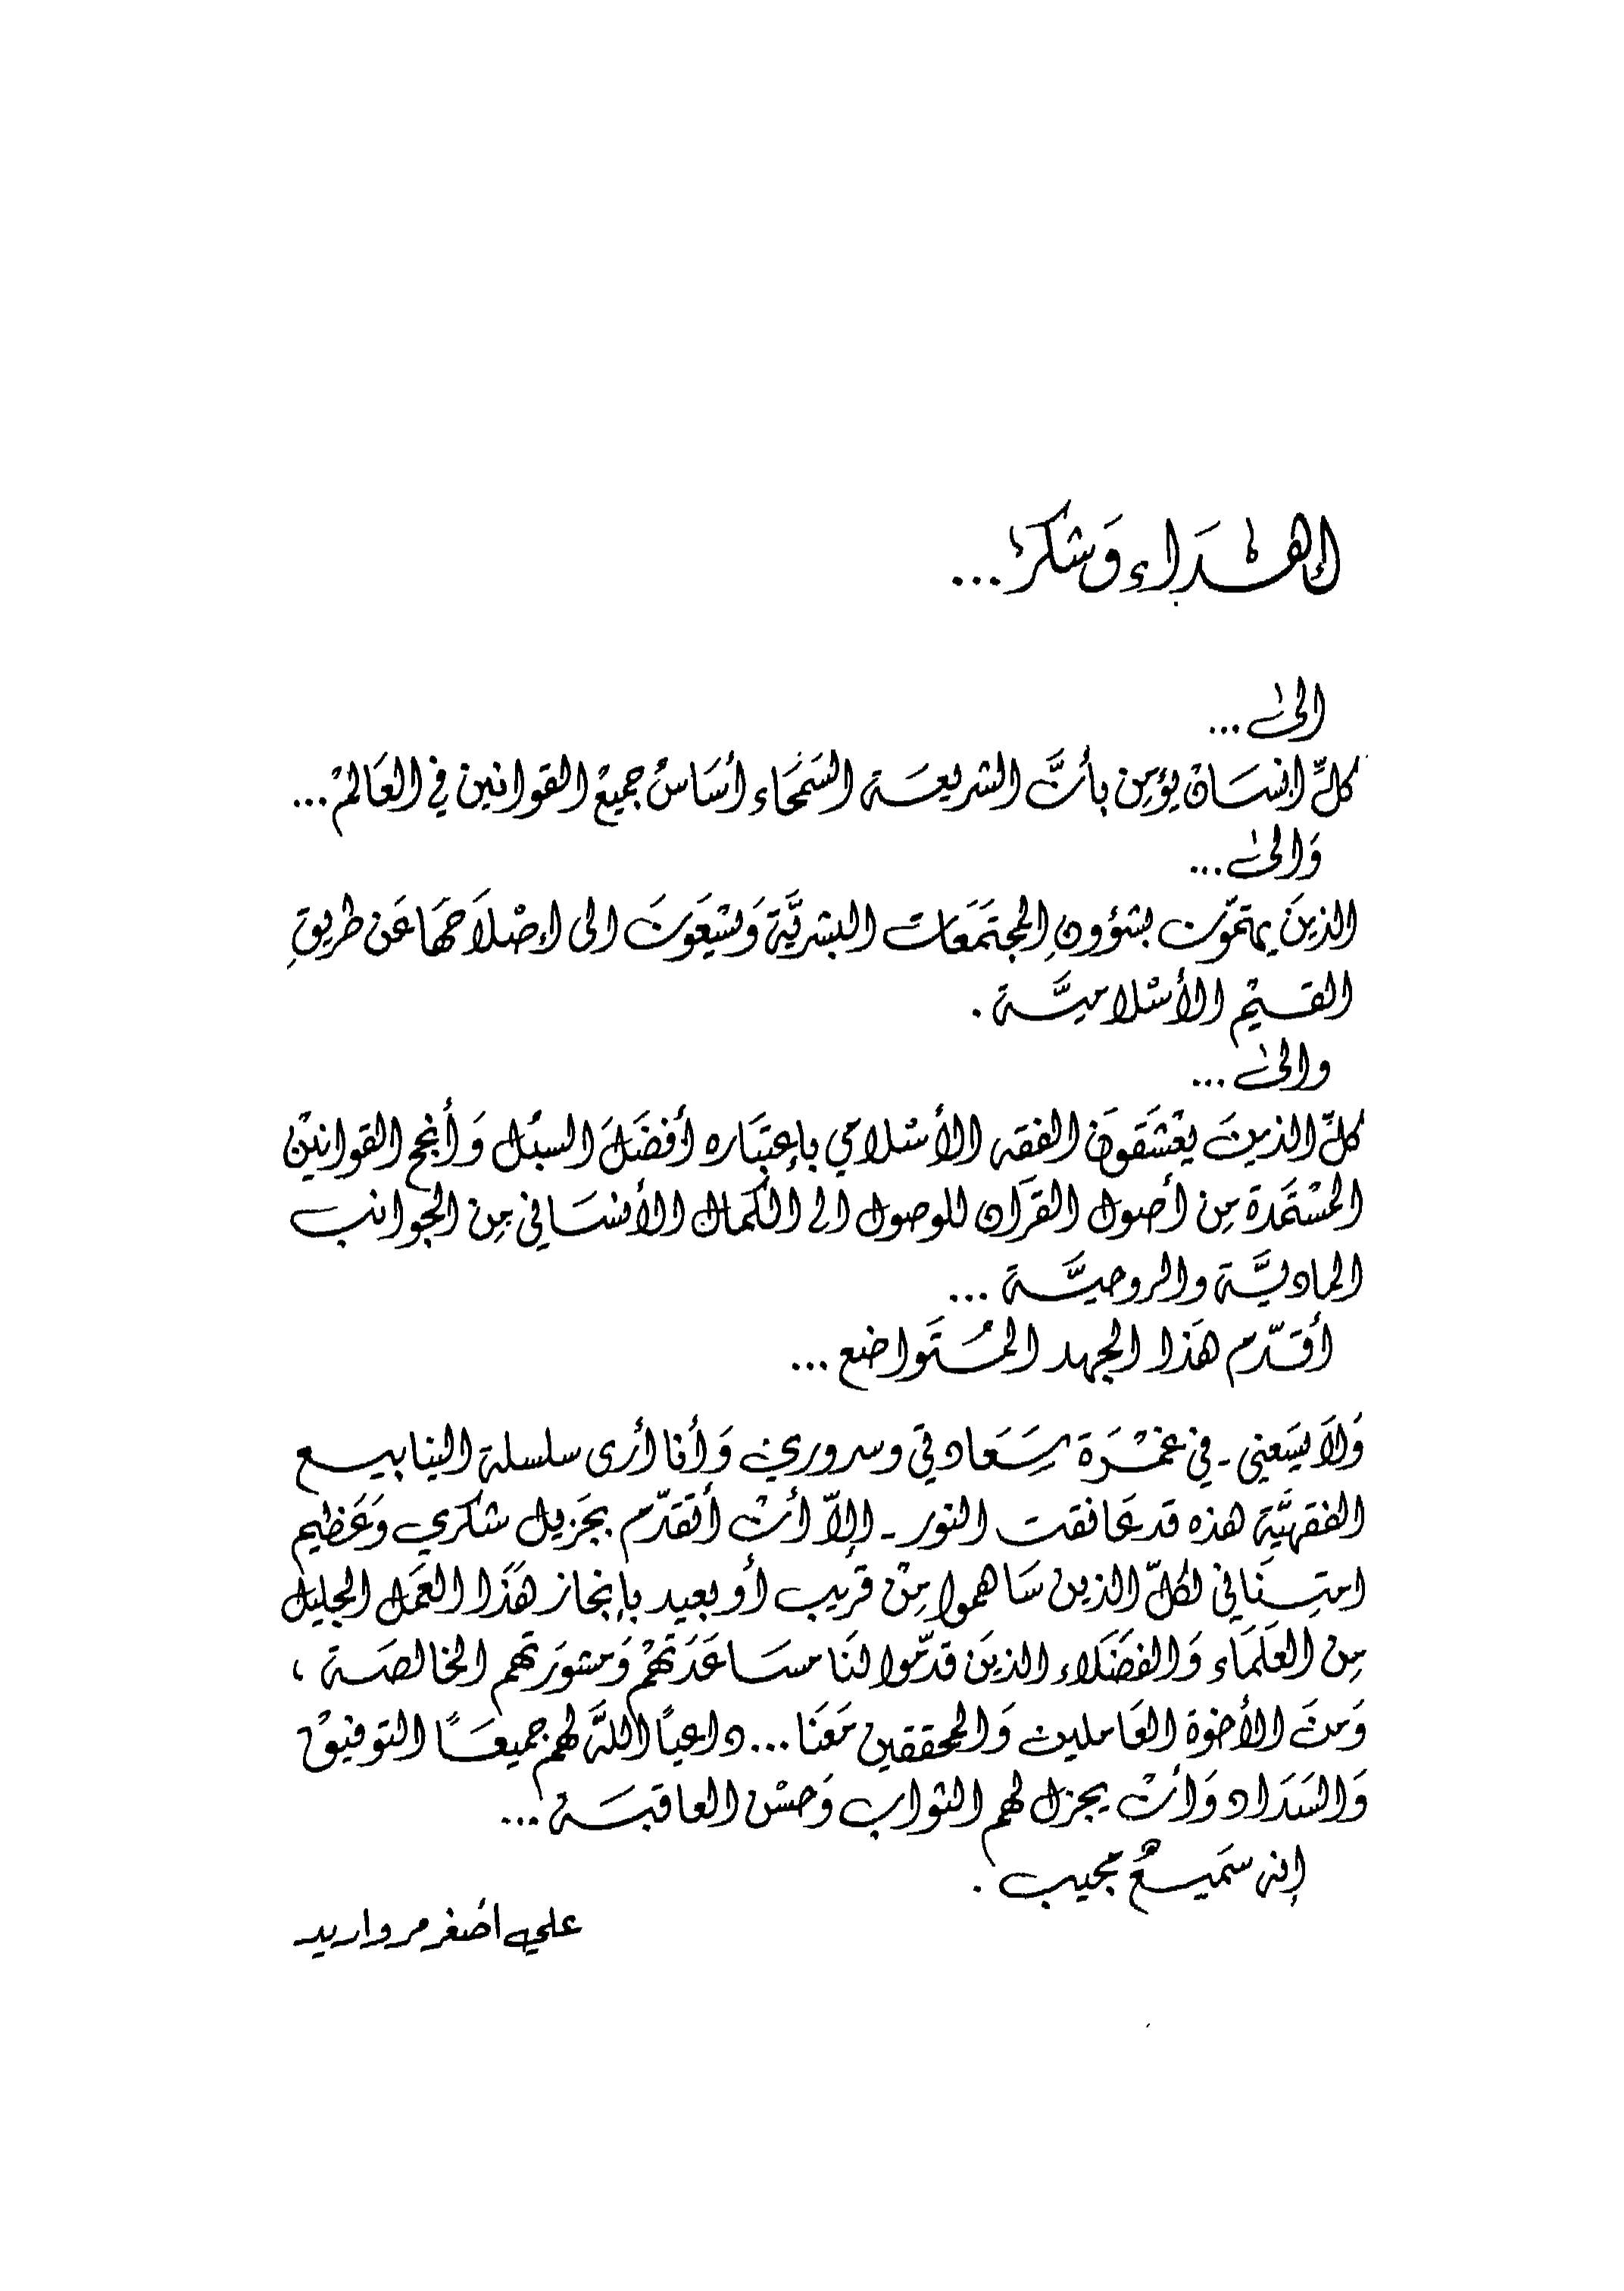 إهداء وَشكر...
الىٰ...
كلِّ انسَان يؤمِن بأنَّ الشريعَة السَمحَاء أسَاسُ جميْع القوانين في العَالمْ...
وَالىٰ...
الذينَ يهتمّون بشؤونِ المجتَمَعَات البشريَّة وَيسْعَونَ الى إصْلاَحهَا عَن طريقِ
القسيْم الأسْلاميَّة .
والىٰ...
كلِّ الذينَ يعْشَقونَ الفقه الأسْلامي بإعتبَاره أفضَلَ السبُل وَأنجح القوانينْ
المسْتَمدة مِن أصول القرآن للوصول الى الكمال الأنسَاني مِن الجوانب
الماديَّة والروحيَّة ...
أقدّم هَذا الجهد المُتَواضع ...
وَلاَ يسَعني - في غمْرَة سَعَادتي وسروري وَأنا أرى سلسلة الينابيع
الفقهيَّة هذه قد عَانقت النور - إلاّ أنْ أتقَدّم بجَزيل شكري وَعَظيم
امتِنَاني لكلّ الذين سَاهموا مِنْ قريب أو بعيد بإنجاز هَذا العَمَل الجليل
مِن العلَمَاء وَالفضَلاء الذينَ قدّموا لنَا مسَاعَدَتهمْ وَمشورَتهم الخالصَة ،
وَمنَ الأخوة العَاملين وَالمحققين مَعَنا... داعيًا اللَّه لهم جميعًا التوفيقُ
وَالسَدَاد وَأنْ يجزل لهم الثواب وَحسْن العاقبَة ...
إنه سَميعٌ مجيب .
علي أصْغر مرواريد